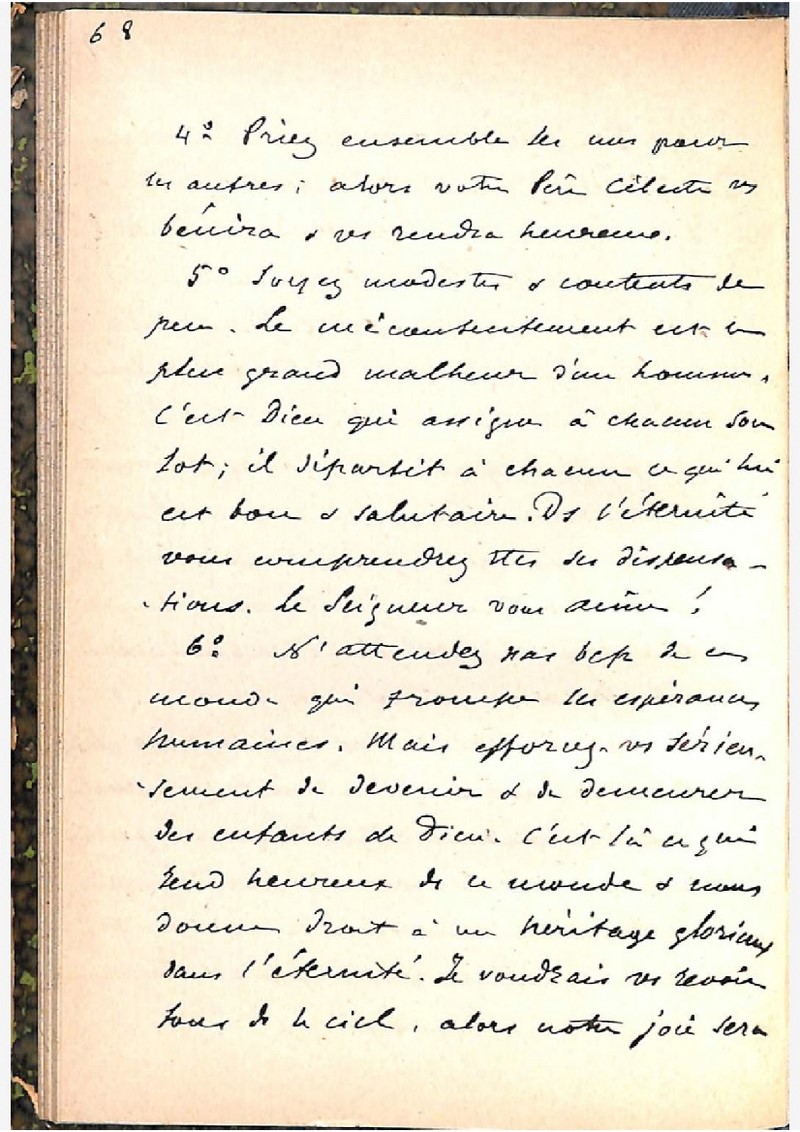 68
4° Priez ensemble les uns pour
les autres ; alors votre Père Céleste vs
bénira & vs rendra heureux.
5° Soyez modestes & contents de
peu. Le mécontentement est le
plus grand malheur d'un homme.
C'est Dieu qui assigne à chacun son
lot ; il départit à chacun ce qui lui
est bon & salutaire. Ds l'éternité
vous comprendrez ttes ses dispensa-
-tions. Le Seigneur vous aime !
6° N'attendez pas bcp de ce
monde qui trompe les espérances
humaines. Mais efforcez-vs sérieu-
-sement de devenir & de demeurer
des enfants de Dieu. C'est là ce qui
rend heureux ds ce monde & nous
donne droit à un héritage glorieux
dans l'éternité. Je voudrais vs revoir
tous ds le ciel, alors notre joie sera